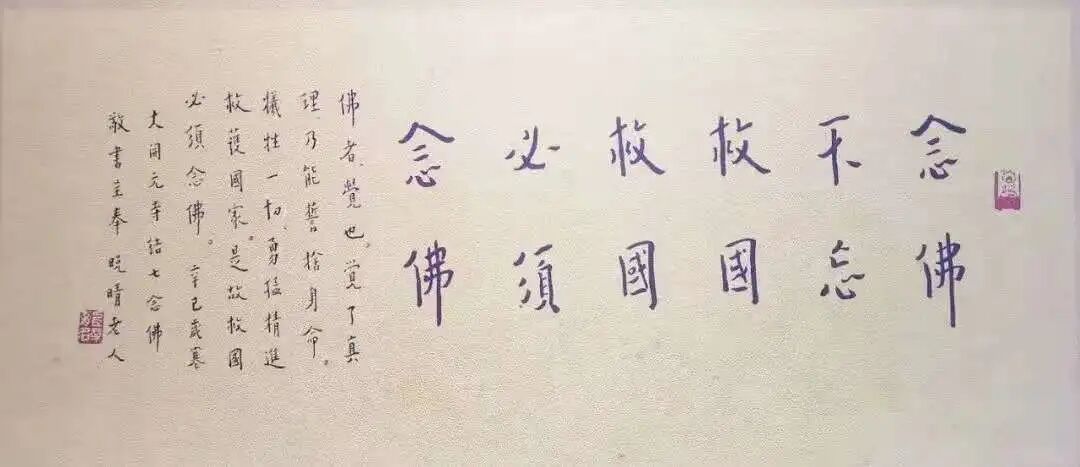 念佛
不忘
救國
救國
必須
念佛
佛者、覺也。覚了真
理、乃能誓捨身命。
犧牲一切、勇猛精進
救護國家。是故救國
必須念佛。 辛巳歲寒
大開元寺結七念佛
敬書呈奉 晚晴老人